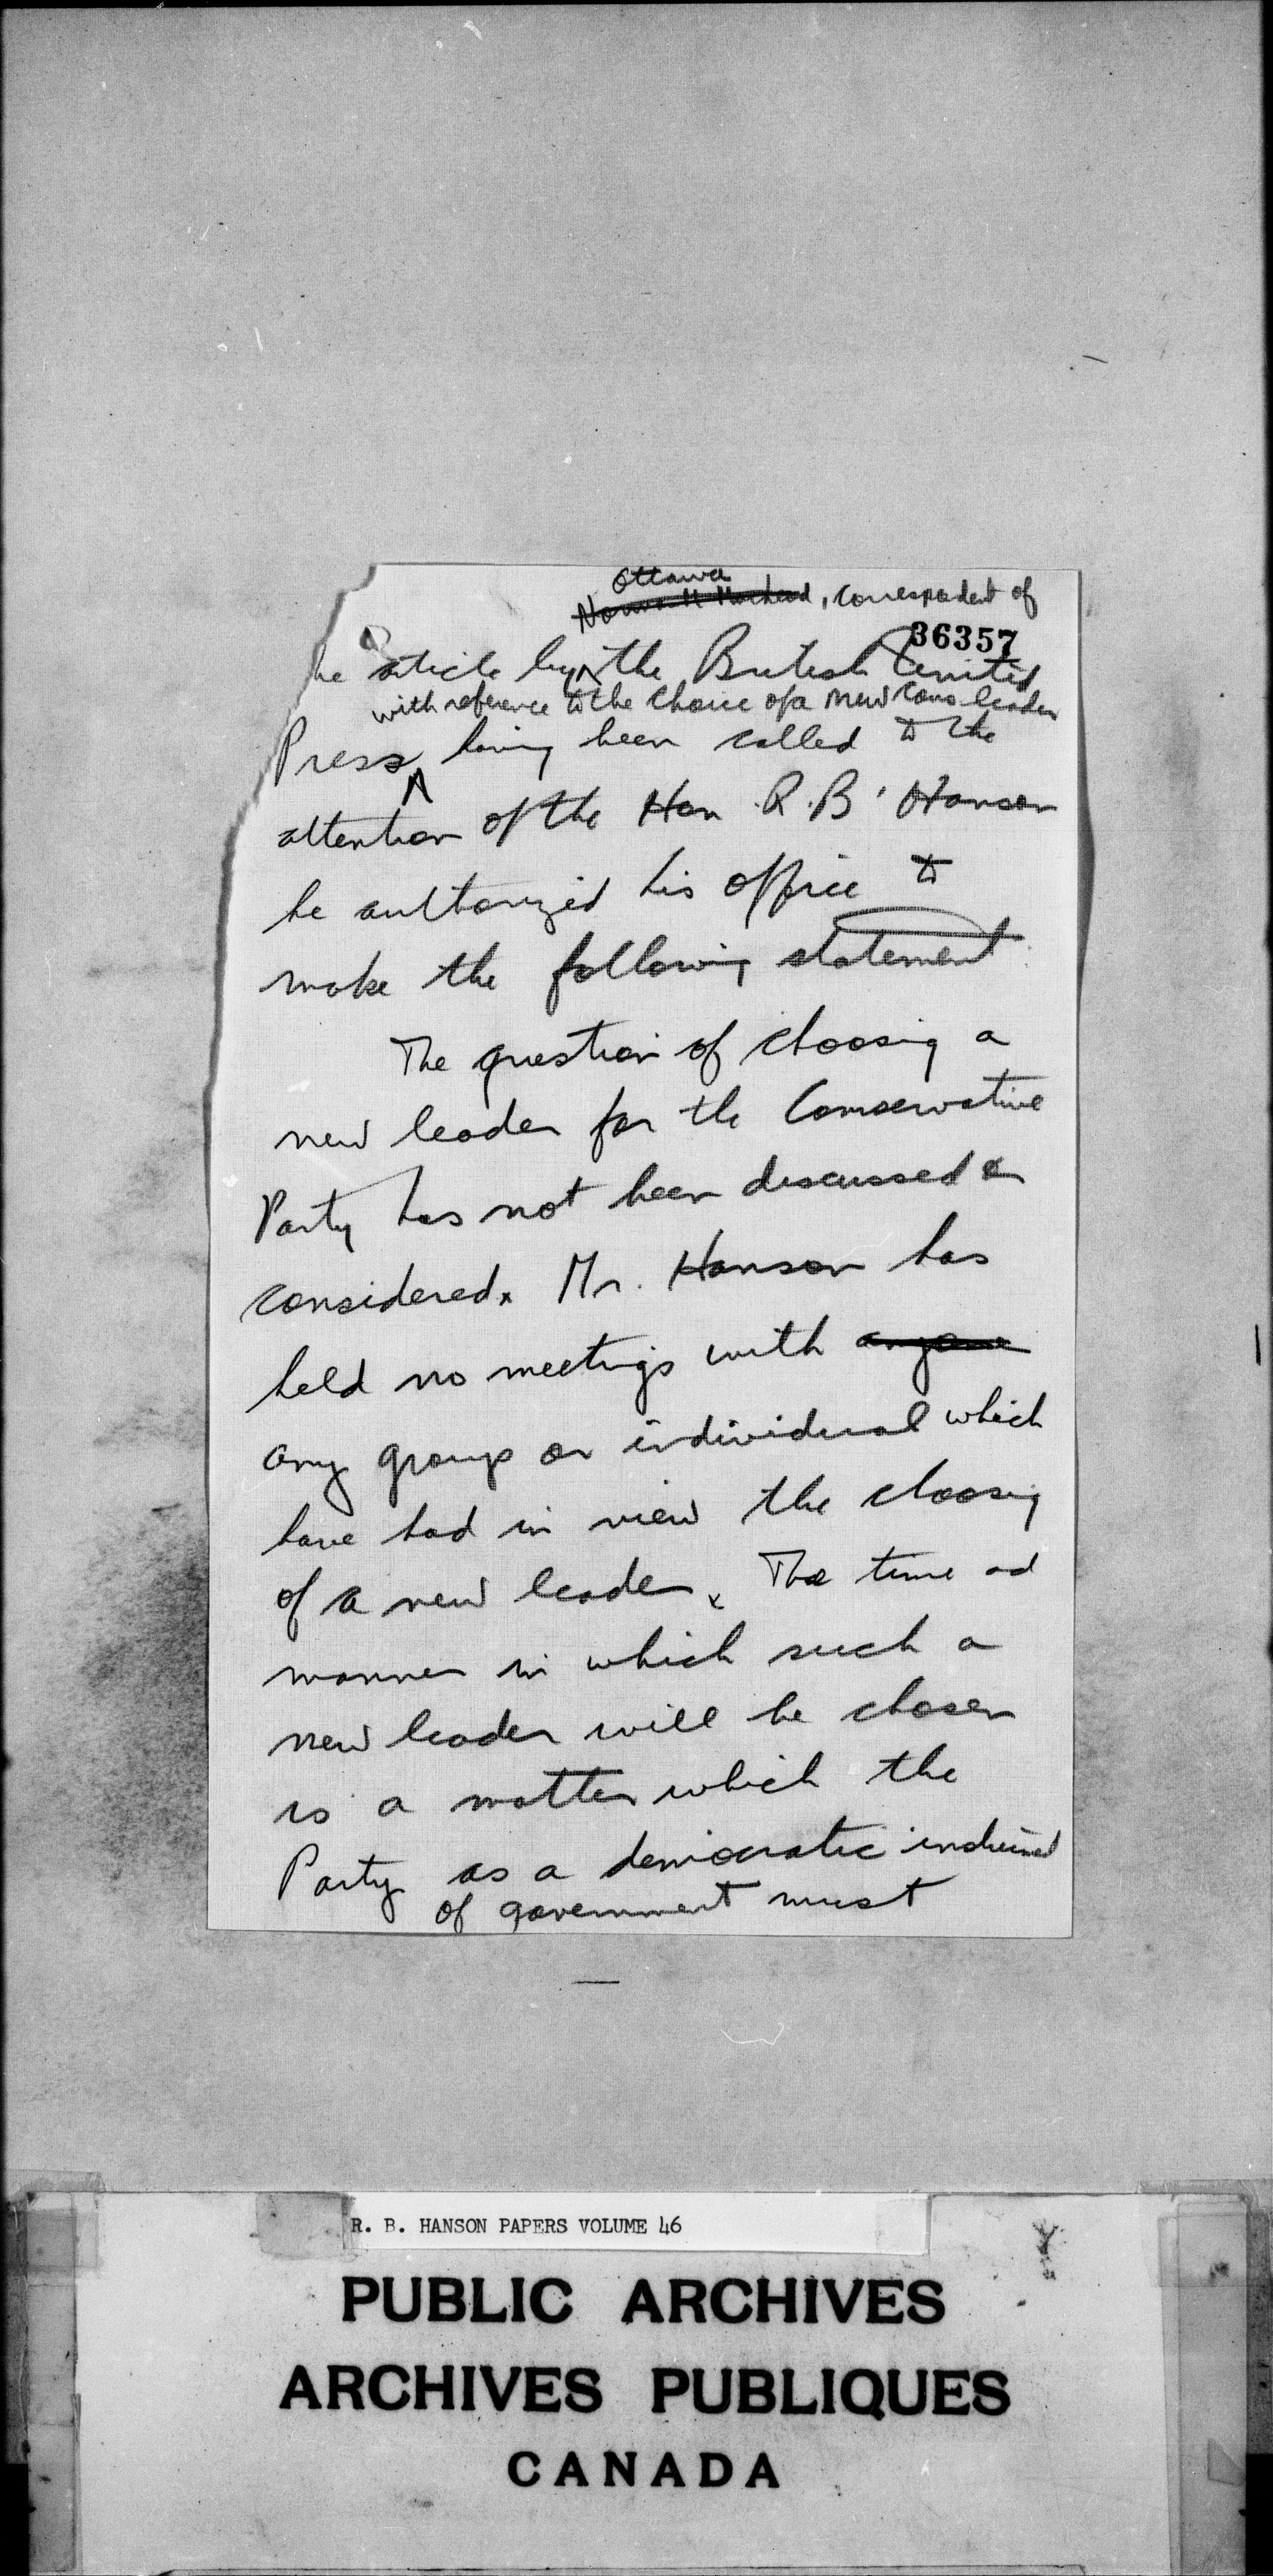 Ottawa
, correspondent of
36357
he article by the British United
with reference to the choice of a new Cons leader
Press having been called to the
attention of the Hon R. B. Hanson
he authorized his office to
make the following statement
The question of choosing a
new leader for the Conservative
Party has not been discussed or
considered x Mr. Hanson has
held no meetings with anyone
any group or individual which
have had in view the choosing
of a new leader x The time and
manner in which such a
new leader will be chosen
is a matter which the
Party as a democratic
of government must
R. B. HANSON PAPERS VOLUME 46
PUBLIC ARCHIVES
ARCHIVES PUBLIQUES
CANADA